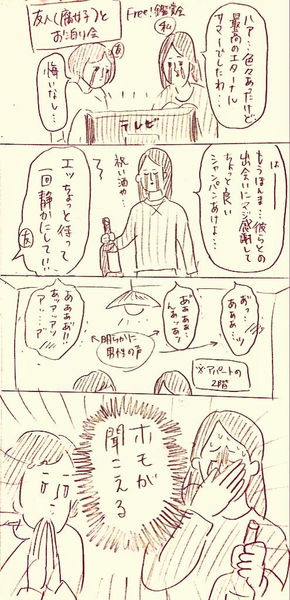 友人(腐女子)と
お泊り会
Free!鑑賞会
私
友
ハァ…色々あったけど
最高のエターナル
サマーでしたわ…
悔いなし…
テレビ
はー
もうほんま…彼らとの
出会いにマジ感謝して
ちょっと良い
シャンパンあけよ…
祝い酒や…
エッちょっと待って
一回静かにして!!
友
おっ…
あぁぁ…ッ
あぁぁぁ
んぁッぁ
↖明らかに
男性の声
ああぁぁ!!
あッアッアッ
アッ…ア゛
※アパートの
2階
ホモが
聞こえる